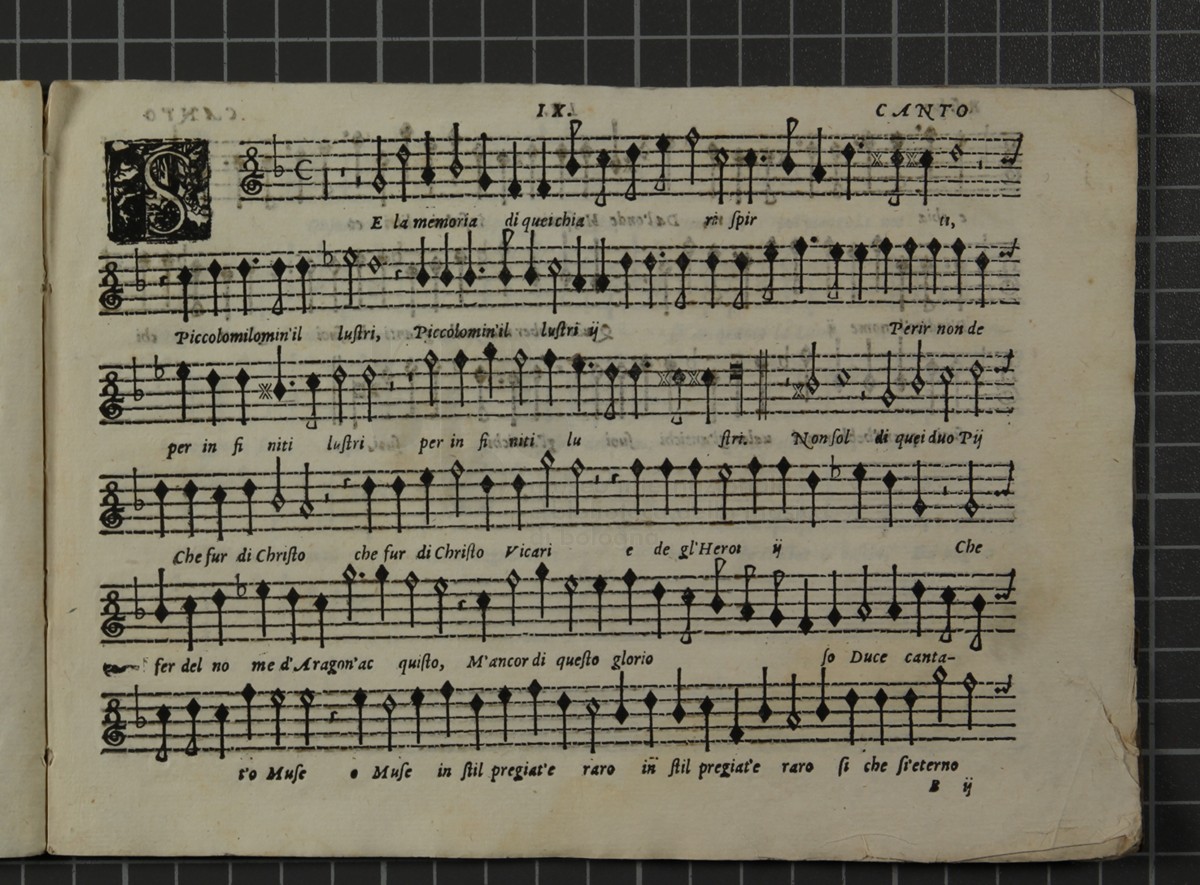 IX. CANTO
SE la memoria di quei chia ri ſpir ti,
Piccolomilomin'il luſtri, Piccolomin'il luſtri ij Perir non de
per in fi niti luſtri per in fi niti lu ſtri. Non ſol di quei duo Pij
Che fur di Chriſto che fur di Chriſto Vicari e de gl'Heroi ij Che
fer del no me d'Aragon'ac quiſto, M'ancor di queſto glorio ſo Duce canta-
t'o Muſe o Muſe in ſtil pregiat'e raro in ſtil pregiat'e raro ſi che ſi'eterno
B ij